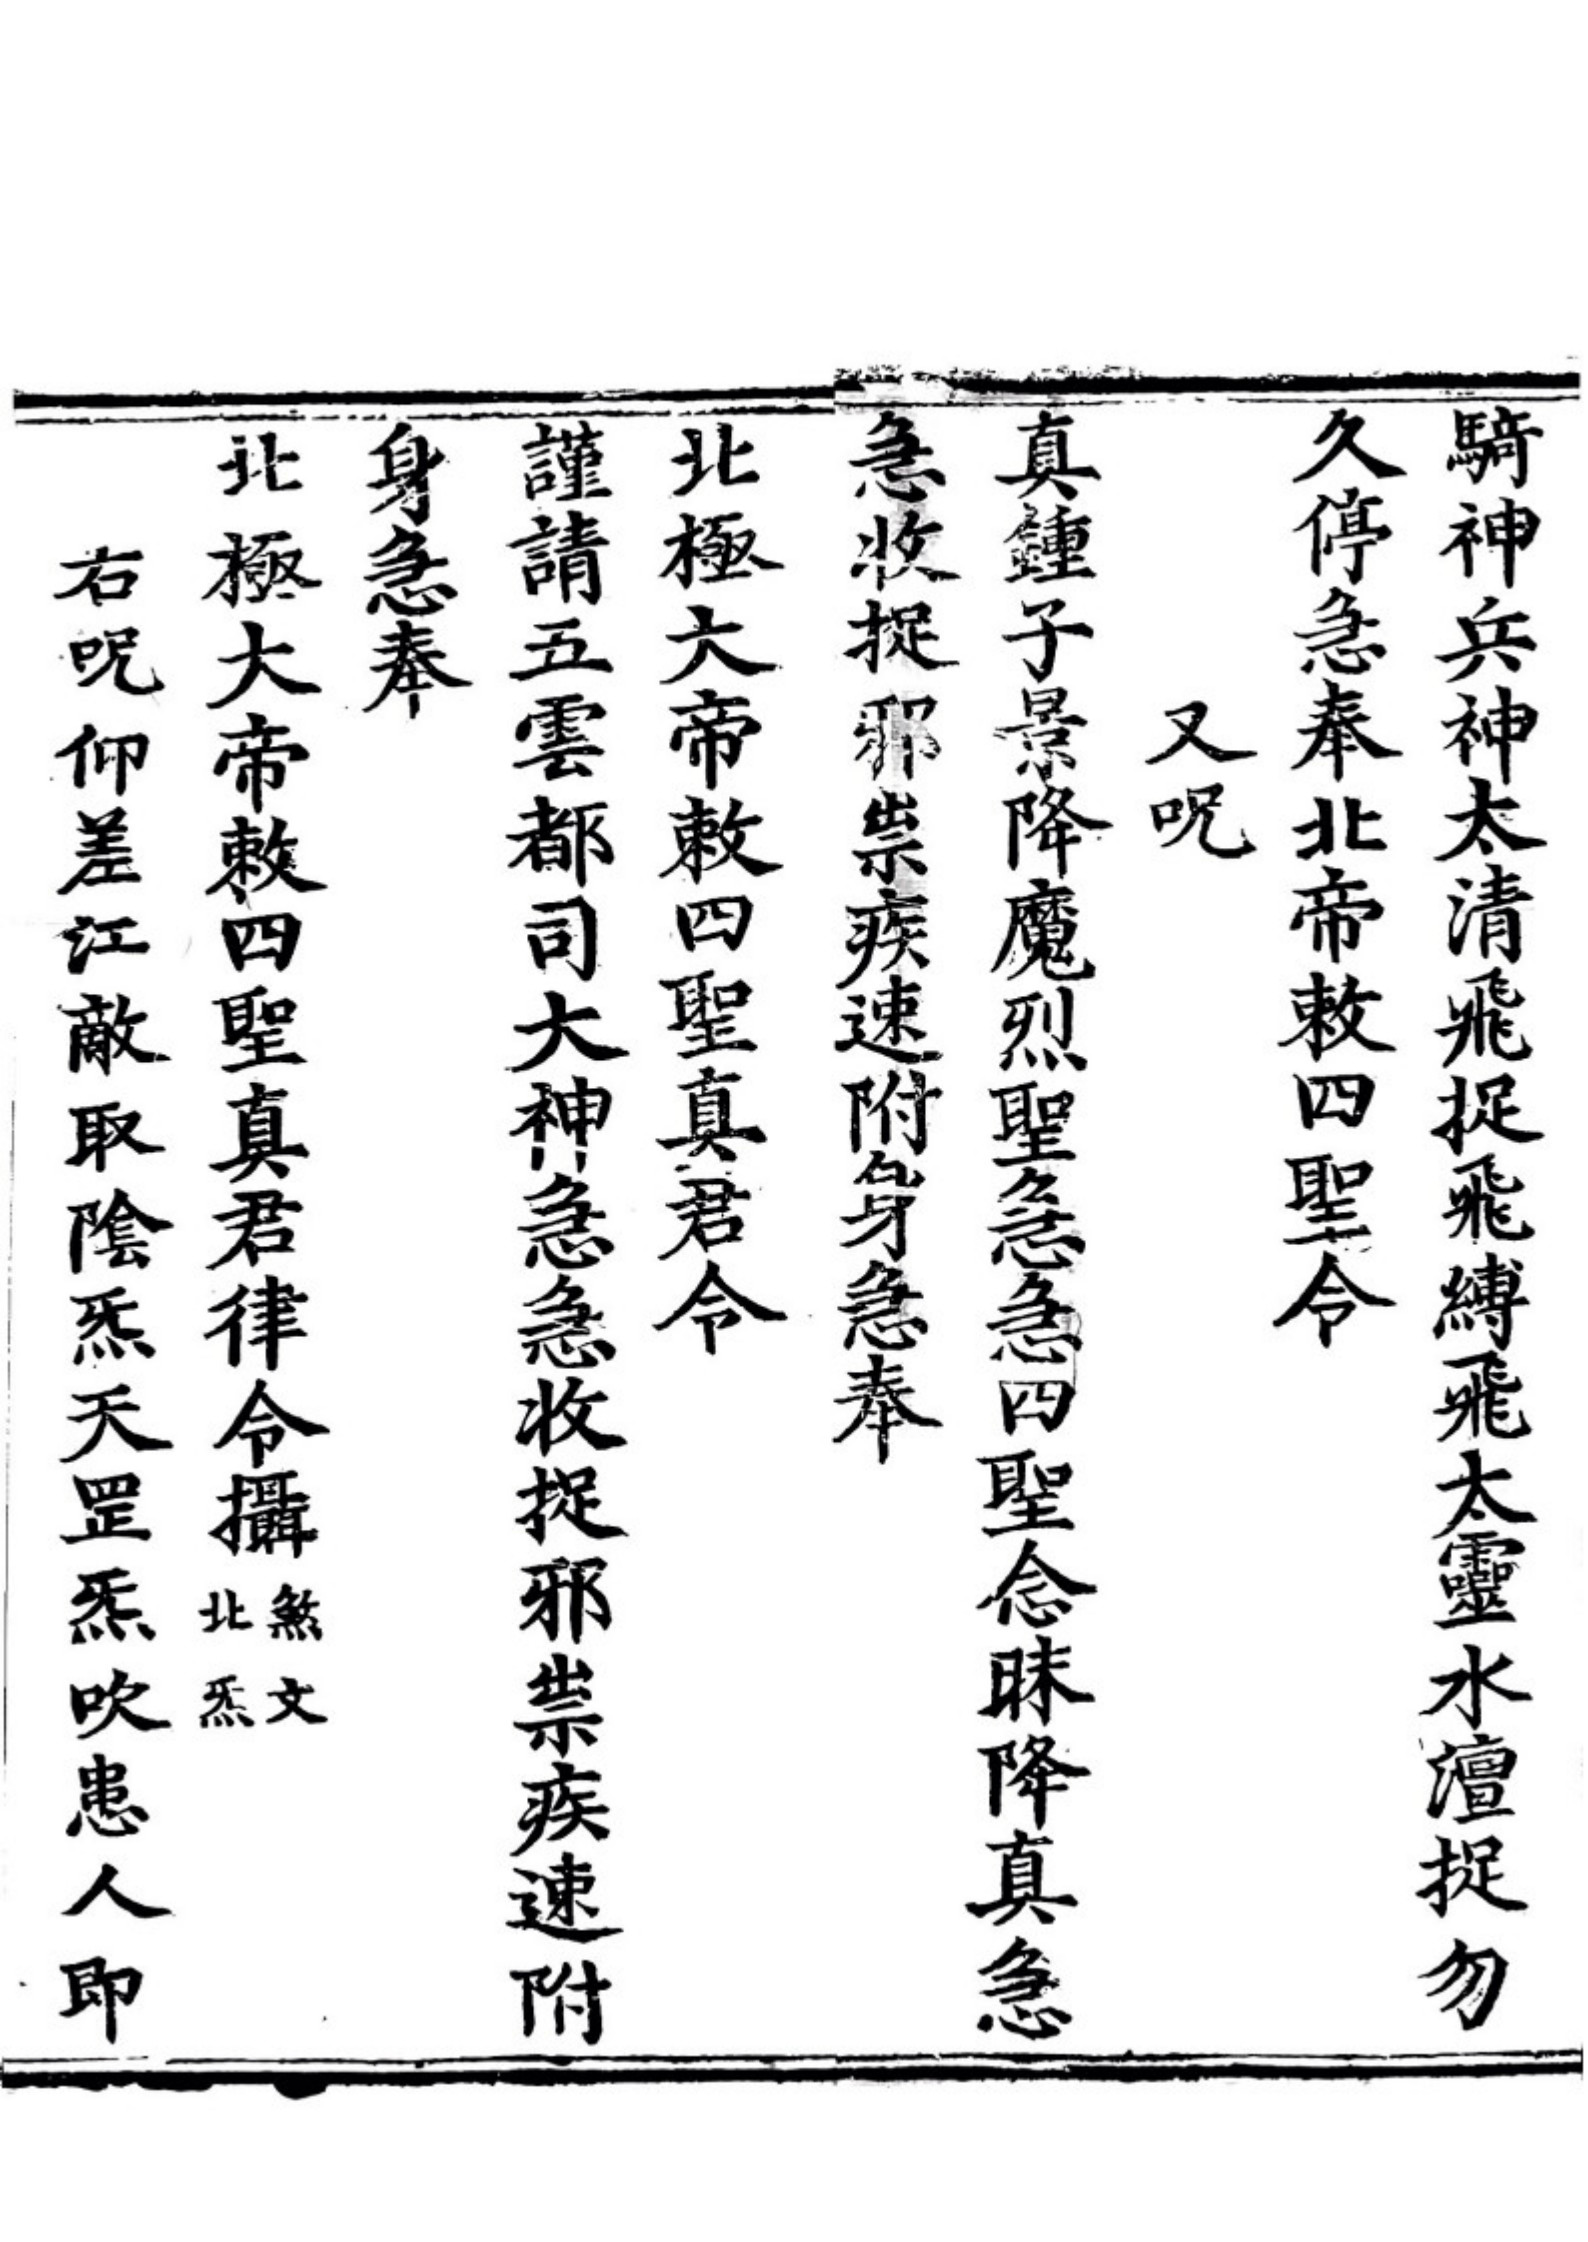 騎神兵神太清飛捉飛縛飛太靈水澶捉勿
久停急奉北帝敕四聖令
又呪
真鍾子景降魔烈聖急急四聖念昧降真急
急收捉邪祟疾速附身急奉
北極大帝敕四聖真君令
謹請五雲都司大神急急收捉邪祟疾速附
身急奉
北極大帝敕四聖真君律令攝煞文北炁
右呪仰差江敵取陰炁天罡炁吹患人即